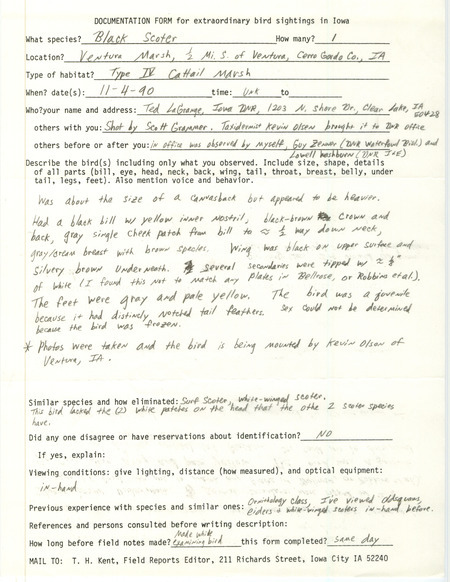 DOCUMENTATION FORM for extraordinary bird sightings in Iowa
What species? Black Scoter How many? 1
Location? Ventura Marsh, ½ Mi. S. of Ventura, Cerro Gordo Co., IA
Type of habitat? Type IV Cattail Marsh
When? date(s): 11-4-90 time: UNK to
Who?your name and address: Ted LaGrange, Iowa DNR, 1203 N. Shore Dr., Clear Lake, IA
50428
others with you: Shot by Scott Grammer. Taxidermist Kevin Olsen brought it to DNR office
others before or after you: in office was observed by myself, Guy Zenner (DNR Waterfowl Biol.) and
Lowell Washburn (DNR I&E)
Describe the bird(s) including only what you observed. Include size, shape, details
of all parts (bill, eye, head, neck, back, wing, tail, throat, breast, belly, under
tail, legs, feet). Also mention voice and behavior.
Was about the size of a Canvasback but appeared to be heavier.
Had a black bill w/ yellow inner nostril, black-brown crown and
back, gray single cheek patch from bill to ≈ ½ way down neck,
gray/cream breast with brown species. Wing was black on upper surface and
Silvery brown underneath. Several secondaries were tipped w/ ≈
of white (I found this not to match any plates in Bellrose, or Robbins et al.).
The feet were gray and pale yellow. The bird was a juvenile
because it had distinctly notched tail feathers. Sex could not be determined
because the bird was frozen.
* Photos were taken and the bird is being mounted by Kevin Olson of
Ventura, IA.
Similar species and how eliminated: Surf Scoter, white-winged scoter.
This bird lacked the (2) white patches on the head that the othe 2 scoter species
have.
Did any one disagree or have reservations about identification? NO
If yes, explain:
Viewing conditions: give lighting, distance (how measured), and optical equipment:
in-hand
Previous experience with species and similar ones: Ornithology class, I've viewed oldsquaws,
eiders & white-winged scoters in-hand before.
References and persons consulted before writing description:
How long before field notes made? Made while examining bird this form completed? same day
MAIL TO: T. H. Kent, Field Reports Editor, 211 Richards Street, Iowa City IA 52240